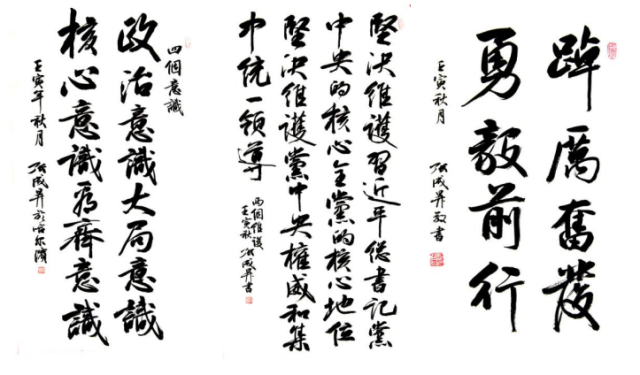 四個意識
政治意識大局意識
核心意識看齊意識
壬寅年秋月 成昇於哈尔濱
堅決維護習近平总書記黨
中央的核心全黨的核心地位
堅決維護黨中央權威和集
中統一領導
两個維護
壬寅秋 成昇書
踔厲奮發
勇毅前行
壬寅秋月 成昇敬書